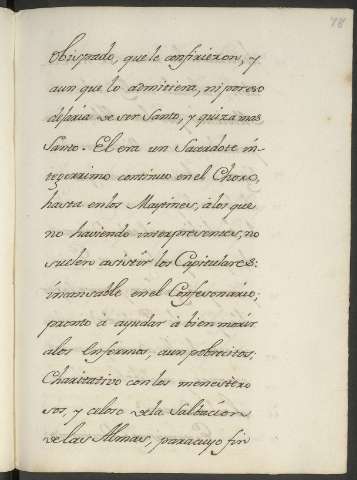 78
Obispado, que le confirieron, y
aun que lo admitiera, ni por eso
dejaria de ser Santo, y quiza mas
Santo. El era un Sacerdote in-
tegerrimo continuo en el Choro,
hasta en los Maytines, à los que
no haviendo interpresentes, no
suelen asistir los Capitulares:
incansable en el Confesonario;
pronto à ayudar à bien morir
alos Enfermos, aun pobrecitos,
Charitativo con los menestero
sos, y celoso dela Salbacion
de las Almas, para cuyo fin